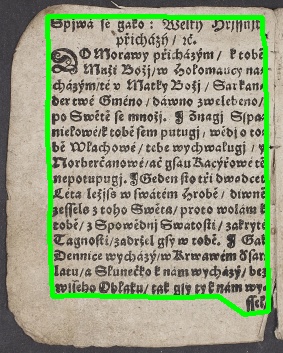 Spjwá se gako: Welky Hřjssnjk
přicházý/ ꝛc.
DO Morawy přicházým/ k tobě
Muži Božj/ w Holomaucy na-
cházým/ tě v Matky Božj/ Sarkan-
der twé Gméno/ dáwno zwelebeno/
po Swětě se množj. ¶ Znagj Sspa-
niekowé/ k tobě sem putugj/ wědj o to-
bě Wlachowé/ tebe wychwalugj/ y
Norberčanowé/ ač gsau Kacýřowé tě
nepotupugj. ¶ Geden sto tři dwodcet
Léta ležjss w swatém Hrobě/ diwně
zesselo z toho Swěta/ proto wolám k
tobě/ z Spowědnj Swatosti/ zakryté
Tagnosti/ zadržel gsy w tobě. ¶ Gak
Dennice wycházý/ w Krwawém
latu/ a Slunečko k nám wycházý/ bez
wsseho Oblaku/ tak gsy ty k nám wy-
ssel